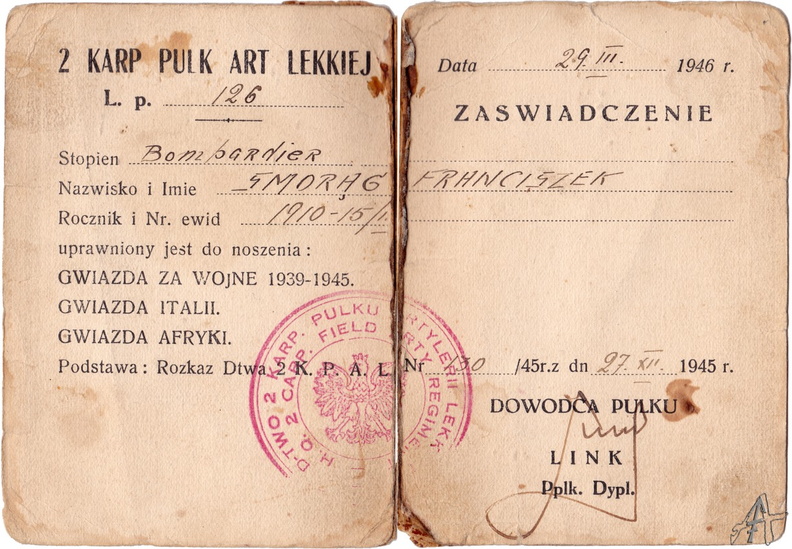 2 KARP PUŁK ART LEKKIEJ
L. p. 126
Stopien Bombardier
Nazwisko i Imie SMORĄG FRANCISZEK
Rocznik i Nr. ewid 1910-15/II
uprawniony jest do noszenia :
GWIAZDA ZA WOJNE 1939-1945.
GWIAZDA ITALII.
GWIAZDA AFRYKI.
Podstawa : Rozkaz Dtwa 2 K. P. A. L. Nr 130 /45r. z dn 27.XII. 1945 r.
Data 29.III. 1946 r.
ZASWIADCZENIE
DOWODCA PULKU
LINK
Pplk. Dypl.
D-TWO 2 KARP. PULKU ARTYLERII LEKK
H. Q. 2 CARP. FIELD ARTY REGIME